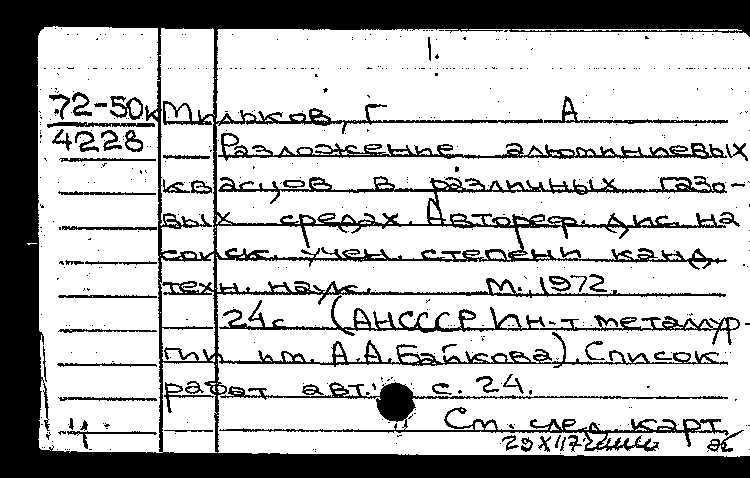 1.
72-50к Мильков, Г А
4228 Разложение алюминиевых
квасцов в различных газо-
вых средах. Автореф. дис. на
соиск. учен. степени канд.
техн. наук. М., 1972.
24с (АНСССР. Ин-т металлур-
гии им. А.А.Байкова). Список
работ авт.: с. 24.
См. след. карт.